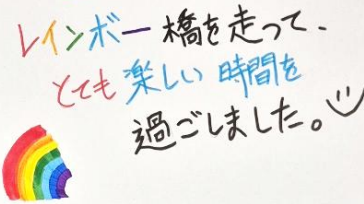 レインボー橋を走って、
とても楽しい時間を
過ごしました。